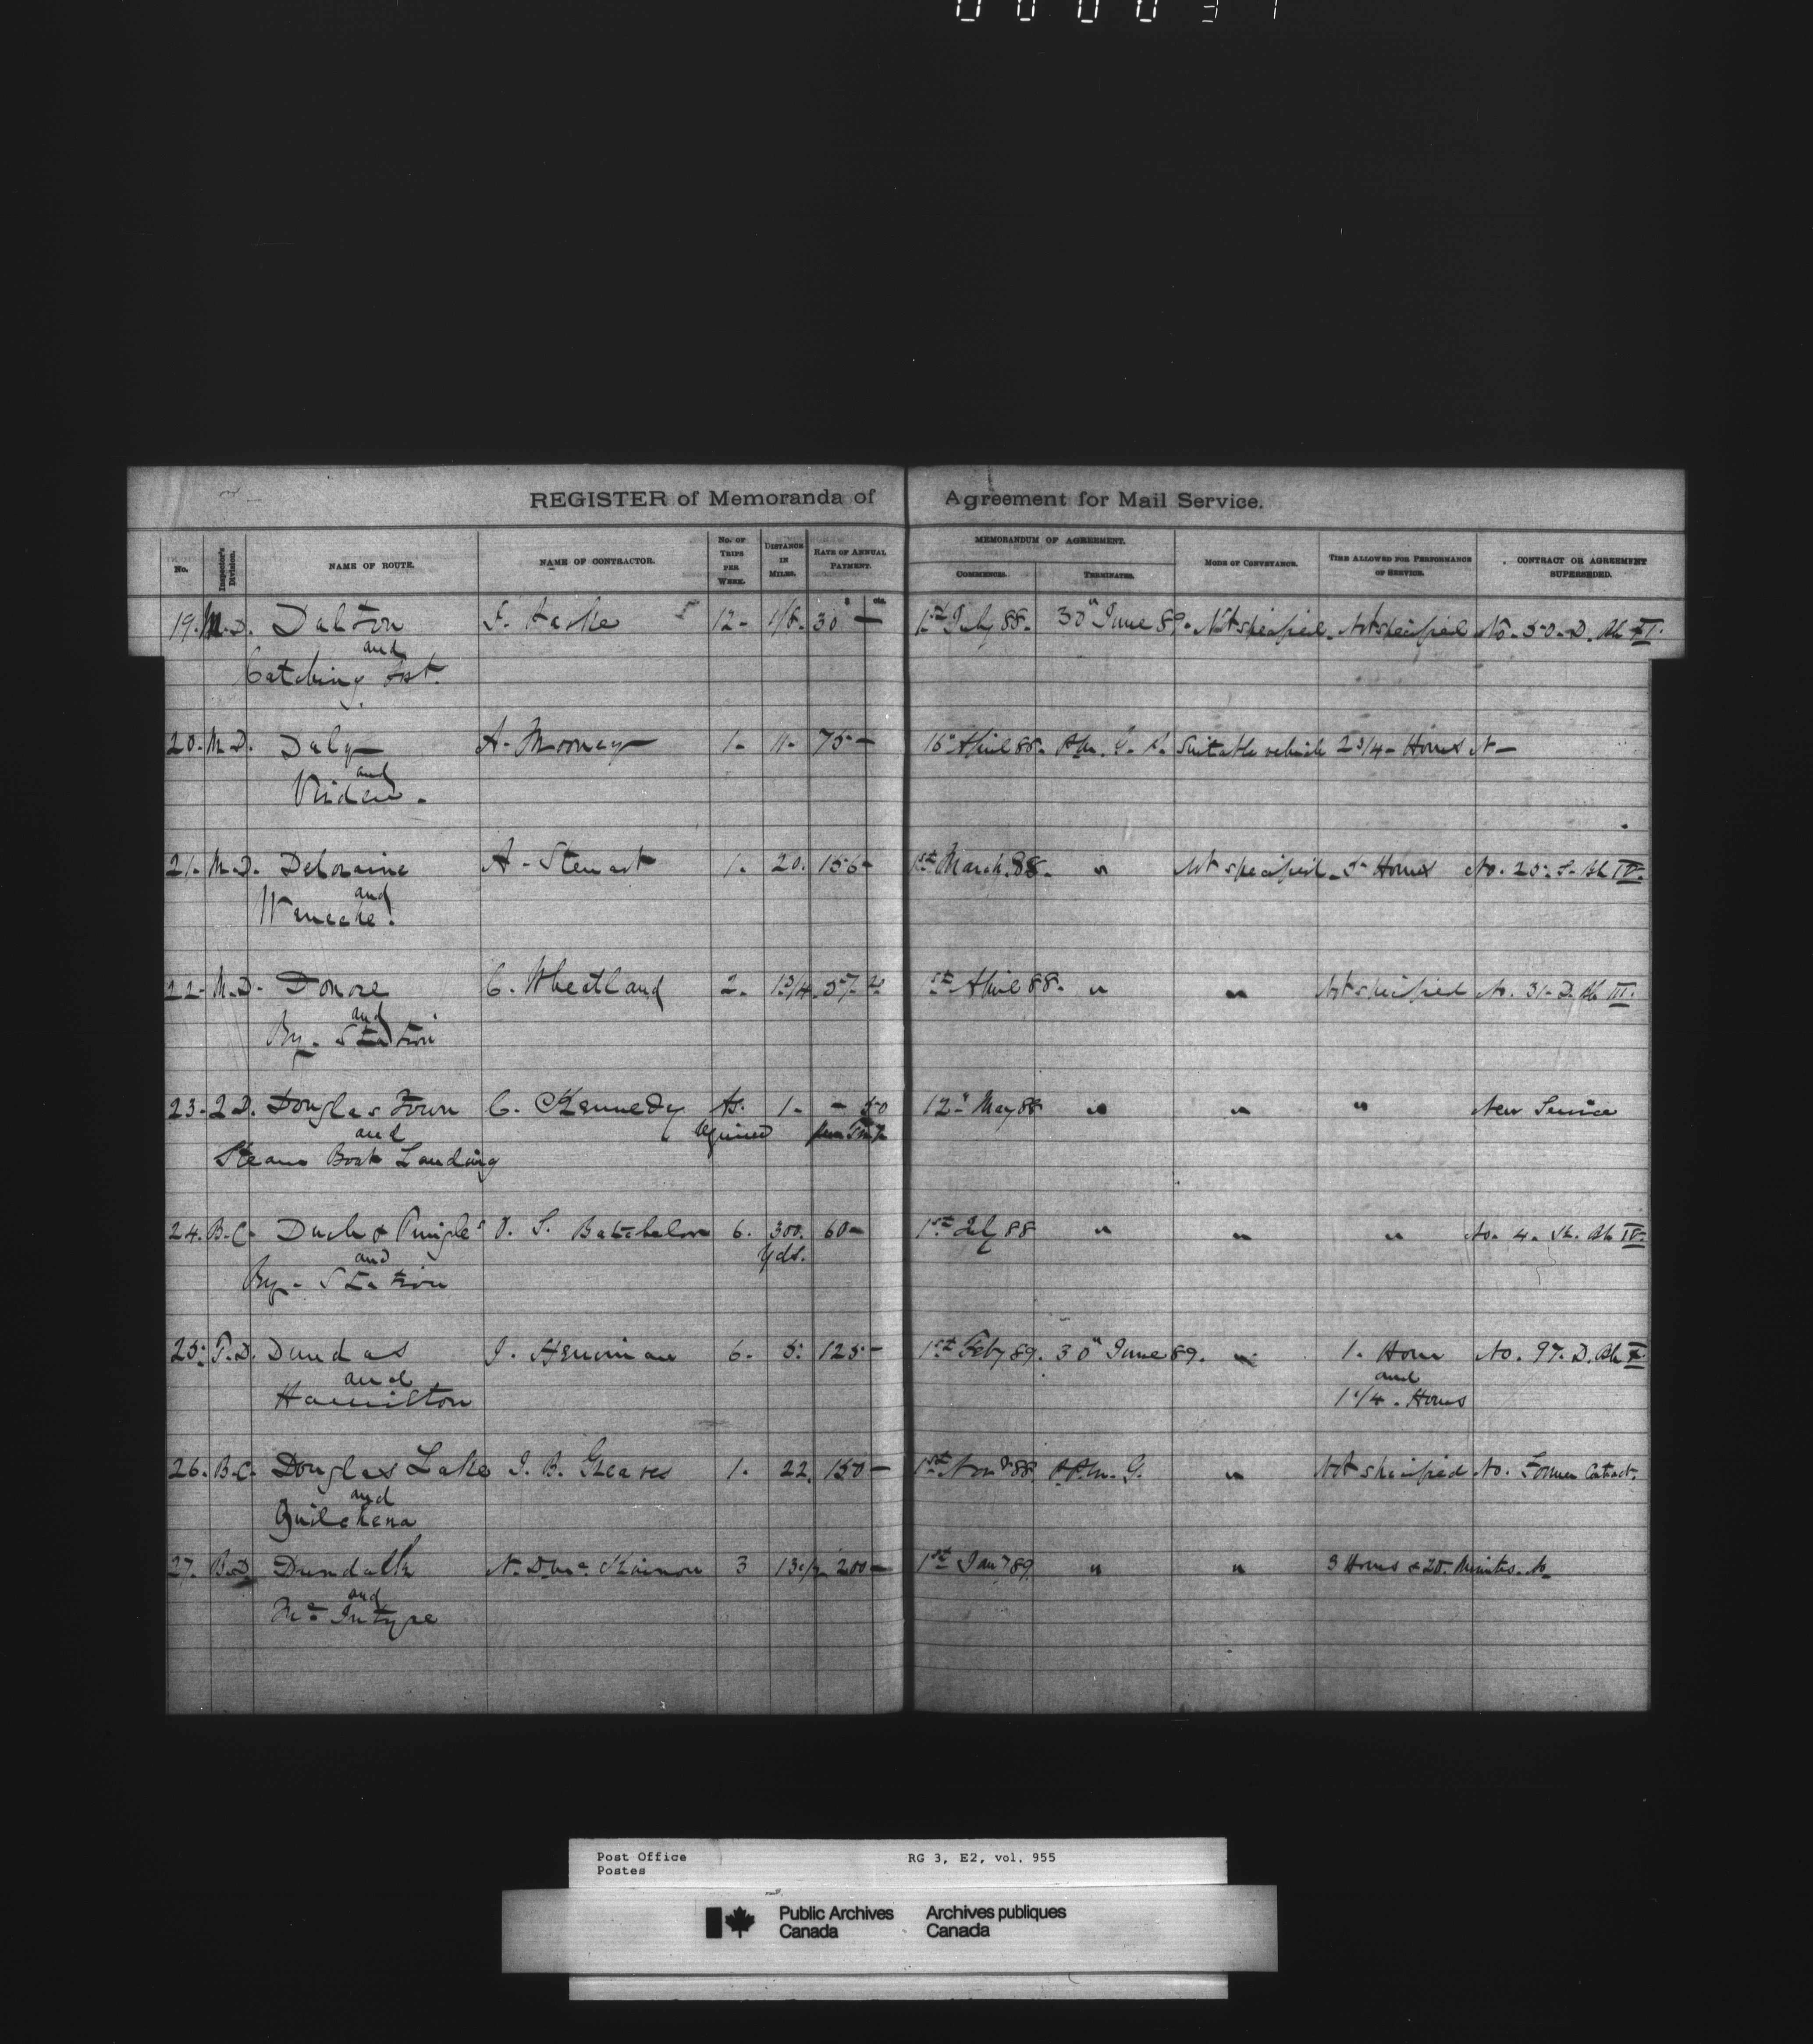 REGISTER of Memoranda of Agreement for Mail Service.
No. Inspector's Division. NAME OF ROUTE. NAME OF CONTRACTOR. No. of Trips per Week. Distance in Miles. Rate of Annual Payment. MEMORANDUM OF AGREEMENT. Commences. Terminates. Mode of Conveyance. Time allowed for performance of service. CONTRACT OR AGREEMENT SUPERSEDED.
19. M.D. Dalton 12- 1/8. 30 — 1st July 88. 30" June 89. Not specified. Not specified No. 50. D. Bk VI.
and
Catching Post.
20. M.D. Daly A. Mooney 1. 11. 75 — 16" April 88. Suitable vehicle 2 3/4 Hours N—
and
Virden.
21. M.D. Deloraine A. Stewart 1. 20. 156- 1st March. 88. " Not specified. 5 Hours No. 25. S. Bk IV.
and
22. M.D. Donore C. Wheatland 2. 1 3/4. 57. 1st April 88. " " Not specified No. 31. D. Bk III.
and
Ry. Station
23. Q D. Douglas Town C. Kennedy As. 1. - 50 12" May 88 " " " New Service
and required per Trip
Steam Boat Landing
24. B.C. Duck & Pringle's Batchelor 6. 300. 60- 1st July 88 " " " No. 4. Bk IV.
and yds.
Ry. Station
25. T.D. Dundas J. Herriman 6. 5. 125- 1st Feby 89. 30" June 89. " 1. Hour No. 97. D. Bk V
and and
Hamilton 1 1/4. Hours
26. B.C. Douglas Lake J. B. Greaves 1. 22. 150- 1st Novr 88. P.P.M.G. " Not specified No. Former Contract.
and
Quilchena
27. B.D Dundalk N. D. McKinnon 3 13 1/2 200- 1st Jany 89. " " 3 Hours & 20. Minutes. N
and
McIntyre
Post Office RG 3, E2, vol. 955
Postes
Public Archives Archives publiques
Canada Canada